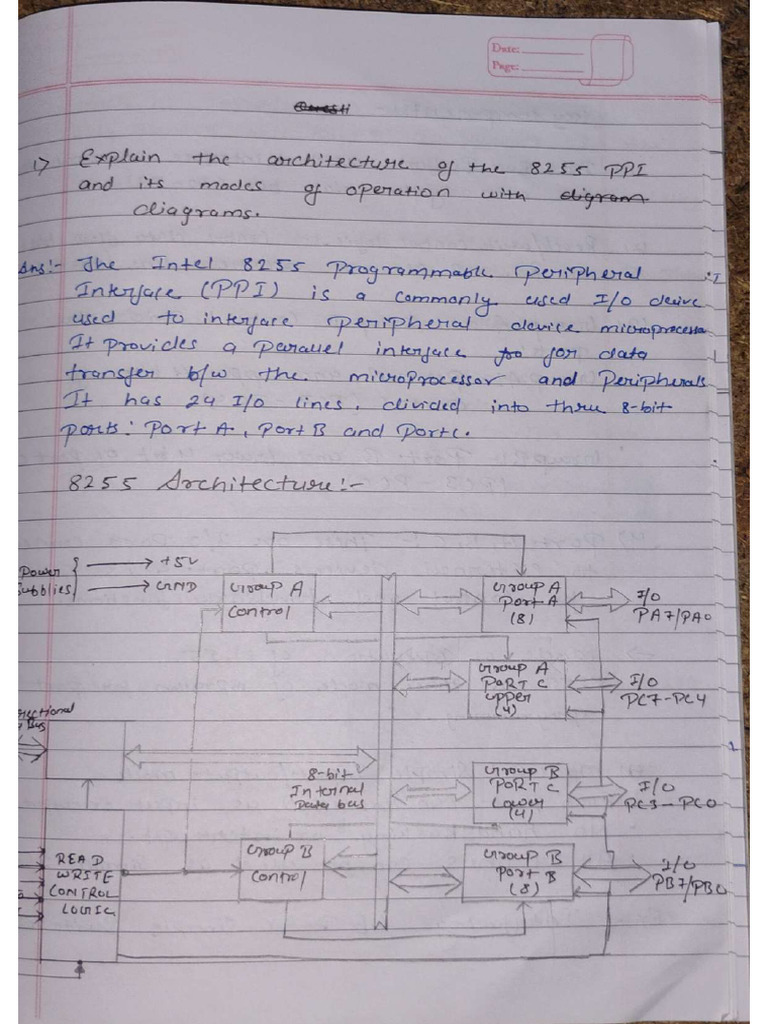 Date:
Page:
1) Explain the architecture of the 8255 PPI
and its modes of operation with digram
diagrams.
Ans:- The Intel 8255 Programmable Peripheral
Interface (PPI) is a commonly used I/O device
used to interface peripheral device microprocessor
It provides a parallel interface for data
transfer b/w the microprocessor and Peripherals
It has 24 I/O lines, divided into three 8-bit
ports: Port A, Port B and Port C.
8255 Architecture:-
Power
Supplies
+5V
GND
Group A
Control
Group A
Port A
(8)
I/O
PA7/PA0
Group A
PORT C
Upper
(4)
I/O
PC7-PC4
8-bit
Internal
Data bus
Group B
PORT C
Lower
(4)
I/O
PC3-PC0
READ
WRITE
CONTROL
LOGIC
Group B
Control
Group B
Port B
(8)
I/O
PB7/PB0